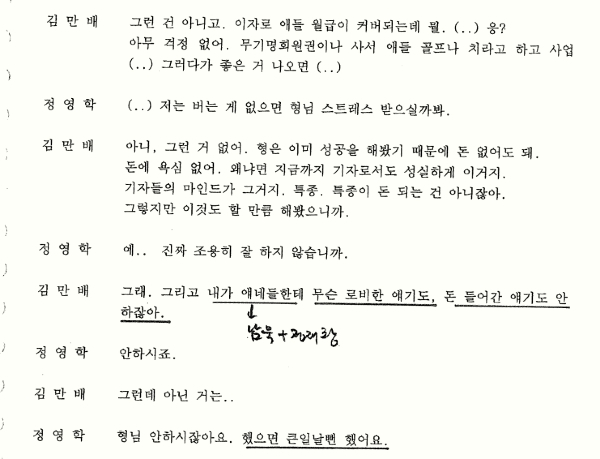 김 만 배 그런 건 아니고. 이자로 애들 월급이 커버되는데 뭘. (..) 응?
아무 걱정 없어. 무기명회원권이나 사서 애들 골프나 치라고 하고 사업
(..) 그러다가 좋은 거 나오면 (..)
정 영 학 (..) 저는 버는 게 없으면 형님 스트레스 받으실까봐.
김 만 배 아니, 그런 거 없어. 형은 이미 성공을 해봤기 때문에 돈 없어도 돼.
돈에 욕심 없어. 왜냐면 지금까지 기자로서도 성실하게 이거지.
기자들의 마인드가 그거지. 특종. 특종이 돈 되는 건 아니잖아.
그렇지만 이것도 할 만큼 해봤으니까.
정 영 학 예.. 진짜 조용히 잘 하지 않습니까.
김 만 배 그래. 그리고 내가 얘네들한테 무슨 로비한 얘기도, 돈 들어간 얘기도 안
하잖아.
남욱 + 정재창
정 영 학 안하시죠.
김 만 배 그런데 아닌 거는..
정 영 학 형님 안하시잖아요. 했으면 큰일날뻔 했어요.